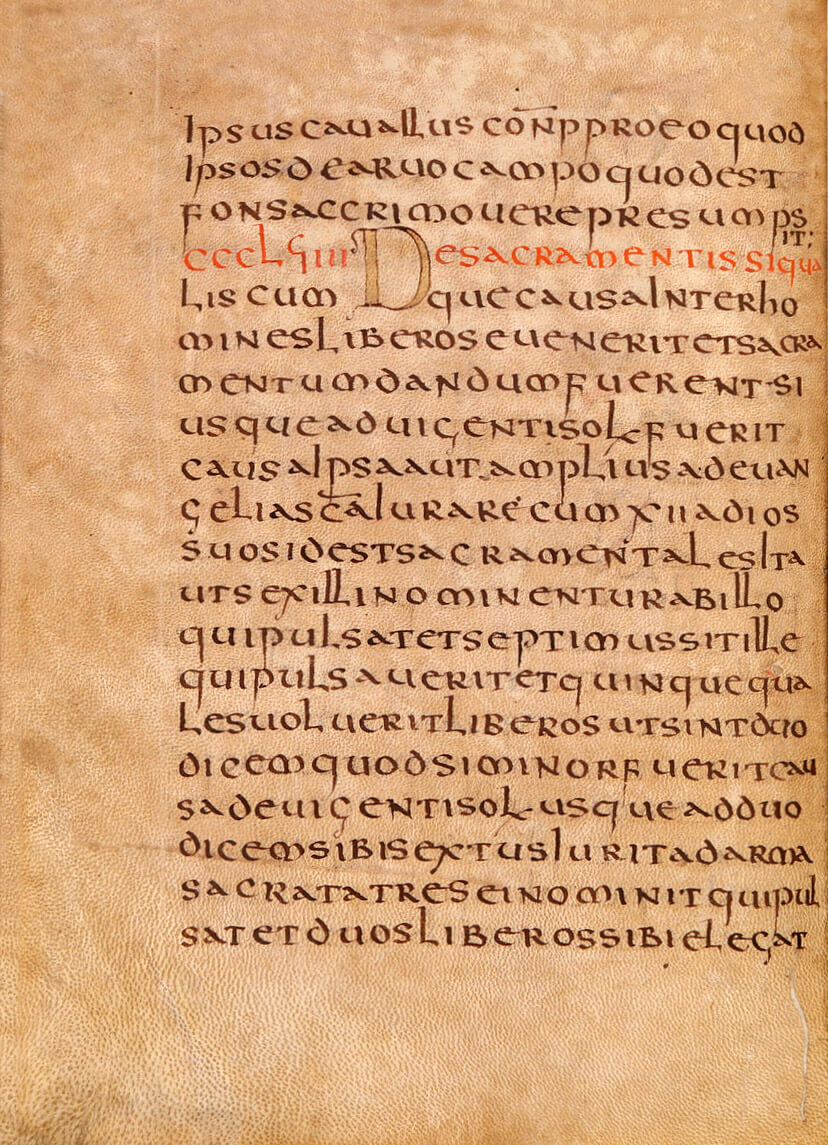 Ipsus cauallus con̄pproeo quod
Ipsos de aruo campo quod est
fons accri mouere presumps
it;
CCCLVIIII De sacramentis si qua
lis cum que causa Inter ho
mines liberos eueneri et et sacra
mentum dandum fuerent· si
usque ad uigenti sol fuerit
causa Ipsa aut amplius ad euan
gelias sc̄a Iurare cum xii adios
suos id est sacramentales Ita
ut sex illi nominentur ab illo
qui pulsat et septimus sit ille
qui pulsauerit et quinque qua
les uoluerit liberos ut sint duo
dicem quod si minor fuerit cau
sa de uigenti sol usque ad duo
dicem sibi sextus Iurit ad arma
sacrata tres ei nominit qui pul
sat et duos liberos sibi elegat